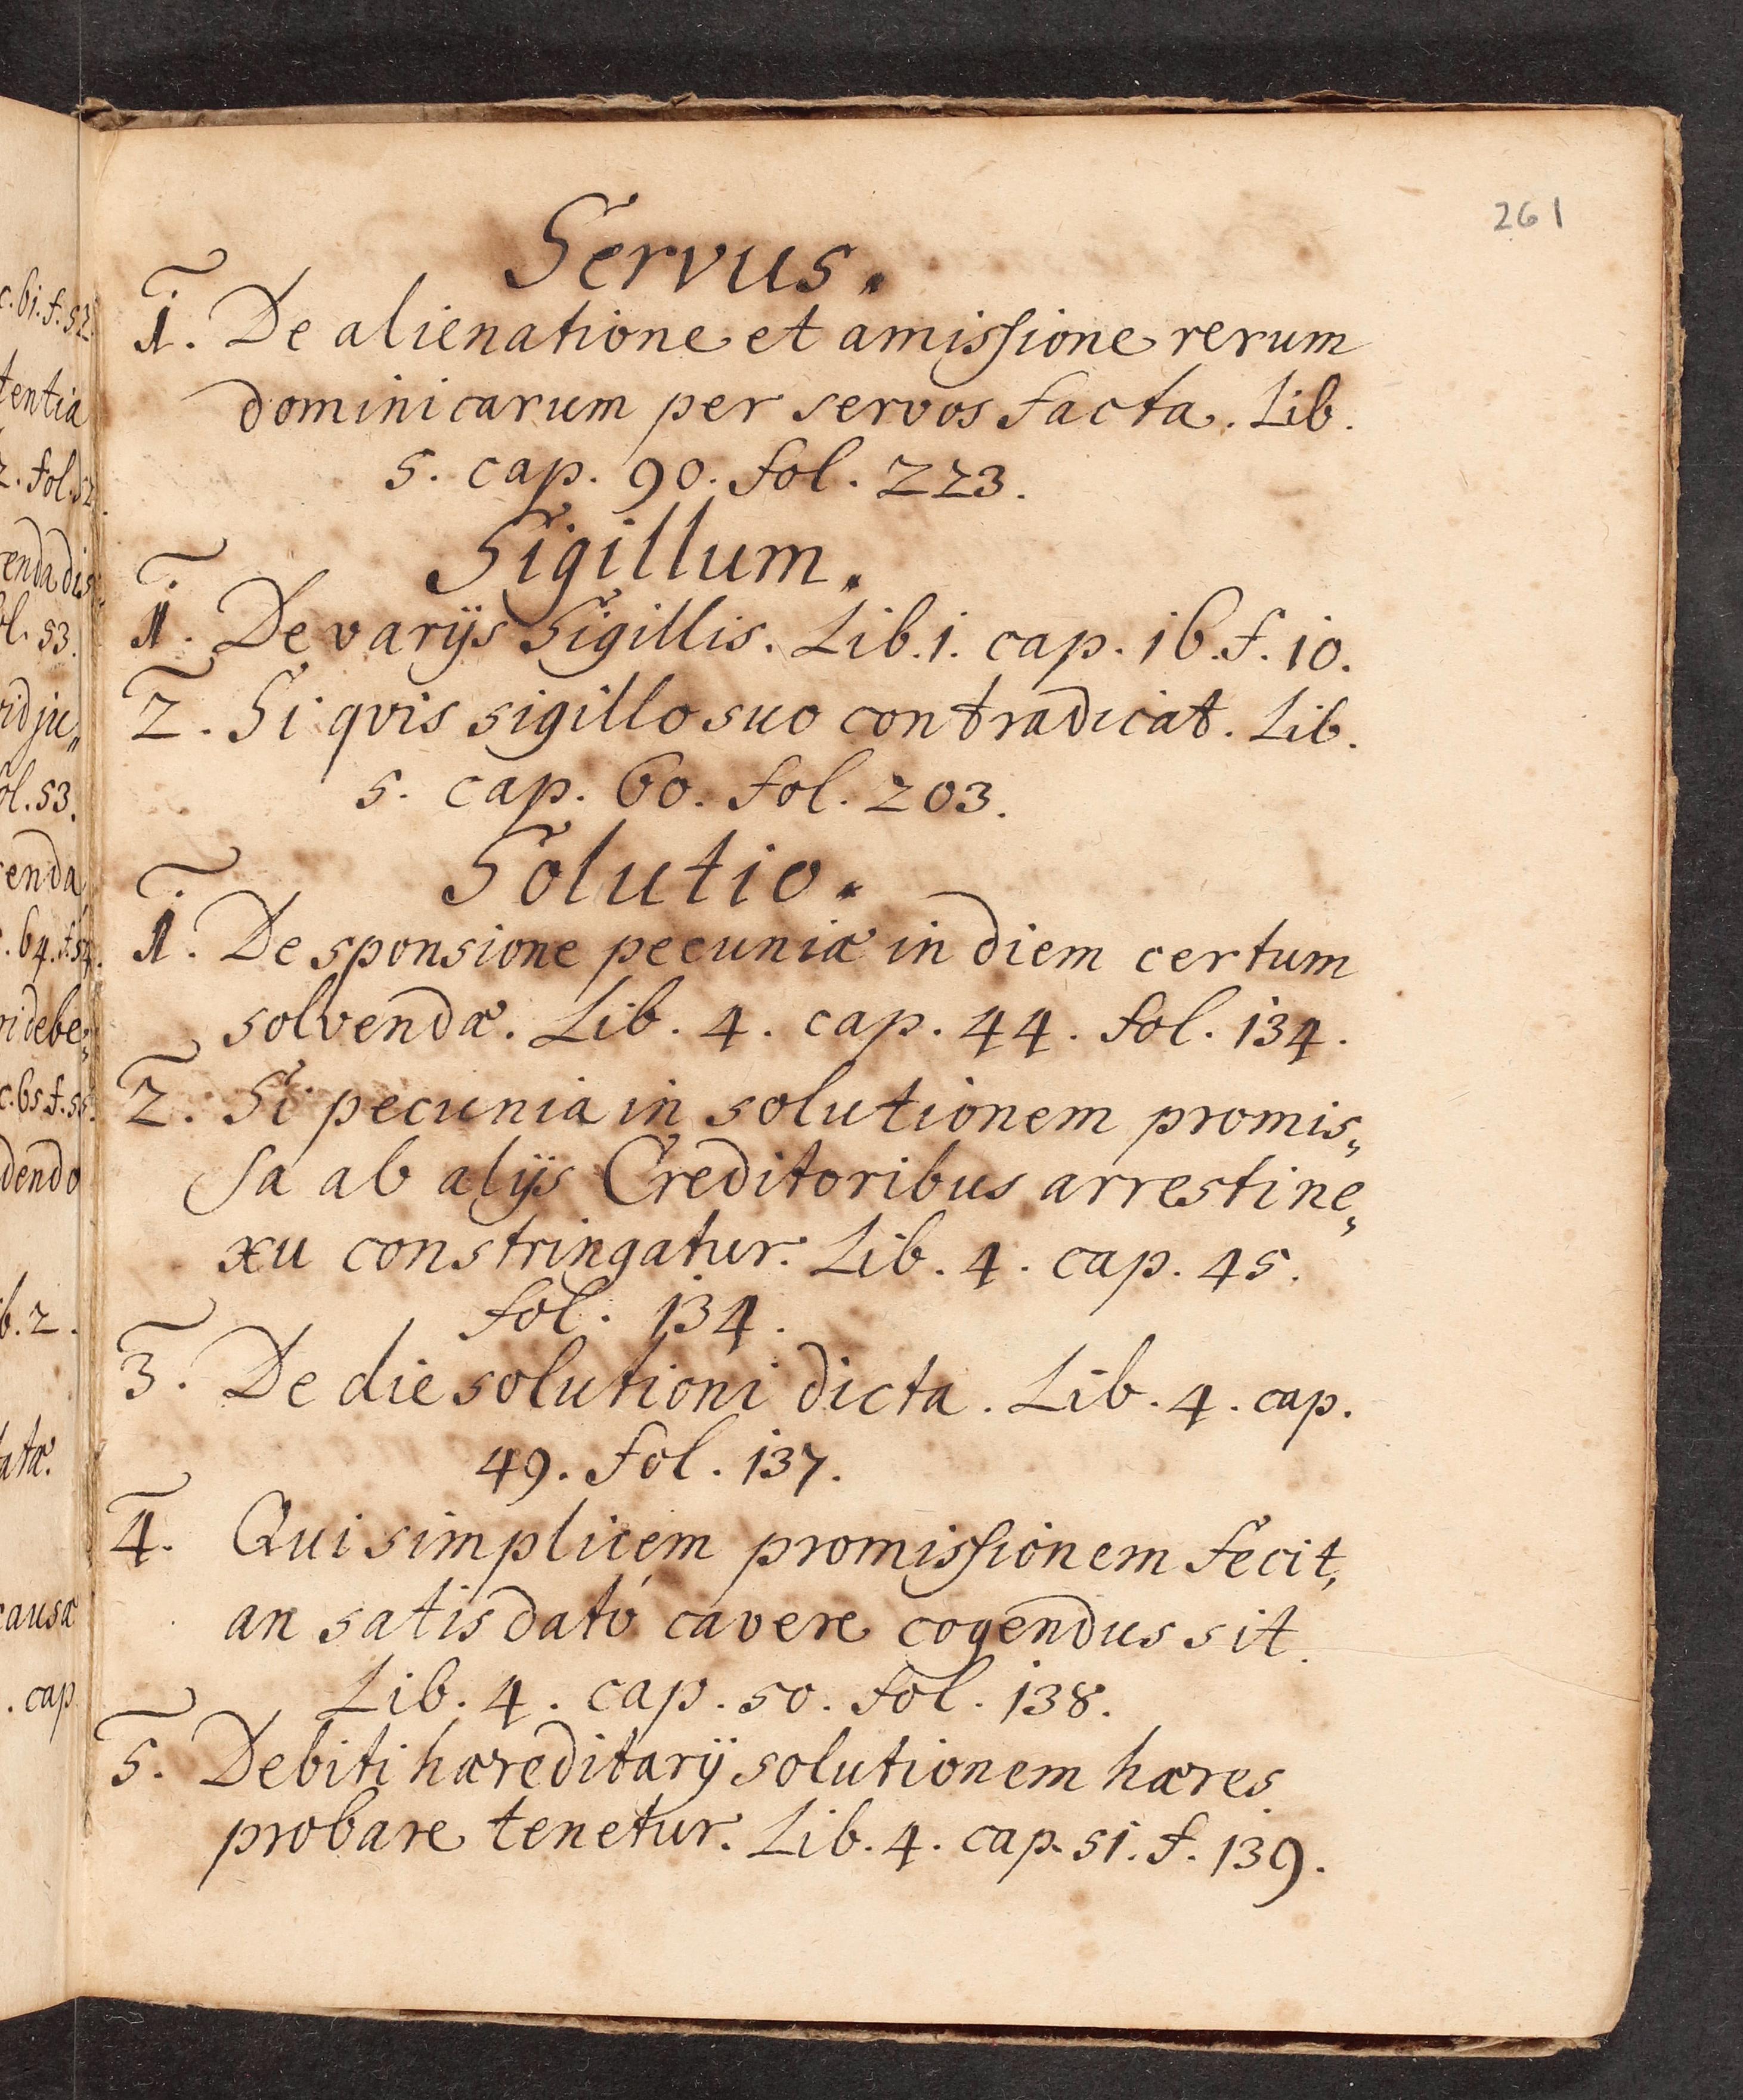 261
Servus.
1. De alienatione et amiſsione rerum
dominicarum per servos facta. Lib.
5. cap. 90. fol. 223.
Sigillum.
1. De varijs Sigillis. Lib. 1. cap. 16. f. 10.
2. Si qvis sigillo suo contradicat. Lib.
5. cap. 60. fol. 203.
Solutio.
1. De sponsione pecuniæ in diem certum
solvendæ. Lib. 4. cap. 44. fol. 134.
2. Si pecunia in solutionem promis„
sa ab alijs Creditoribus arresti ne„
xu constringatur. Lib. 4. cap. 45.
fol. 134.
3. De die solutioni dicta. Lib. 4. cap.
49. fol. 137.
4. Qui simplicem promisſionem fecit,
an satis dató cavere cogendus sit.
Lib. 4. cap. 50. fol. 138.
5. Debiti hæreditarij solutionem hæres
probare tenetur. Lib. 4. cap. 51. f. 139.
c. 61. f. 52
tentia
2. fol. 52.
enda dis
ol. 53.
id ju„
ol. 53.
enda
. 64. f. 54.
ri debe„
c. 65 f. 55.
dendo
b. 2.
atæ.
causæ
. cap